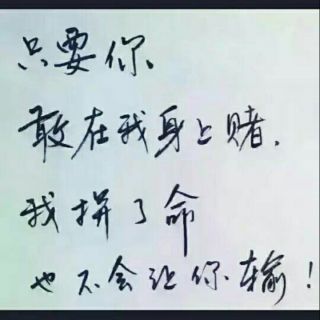 只要你、
敢在我身上赌.
我拼了命
也不会让你输!